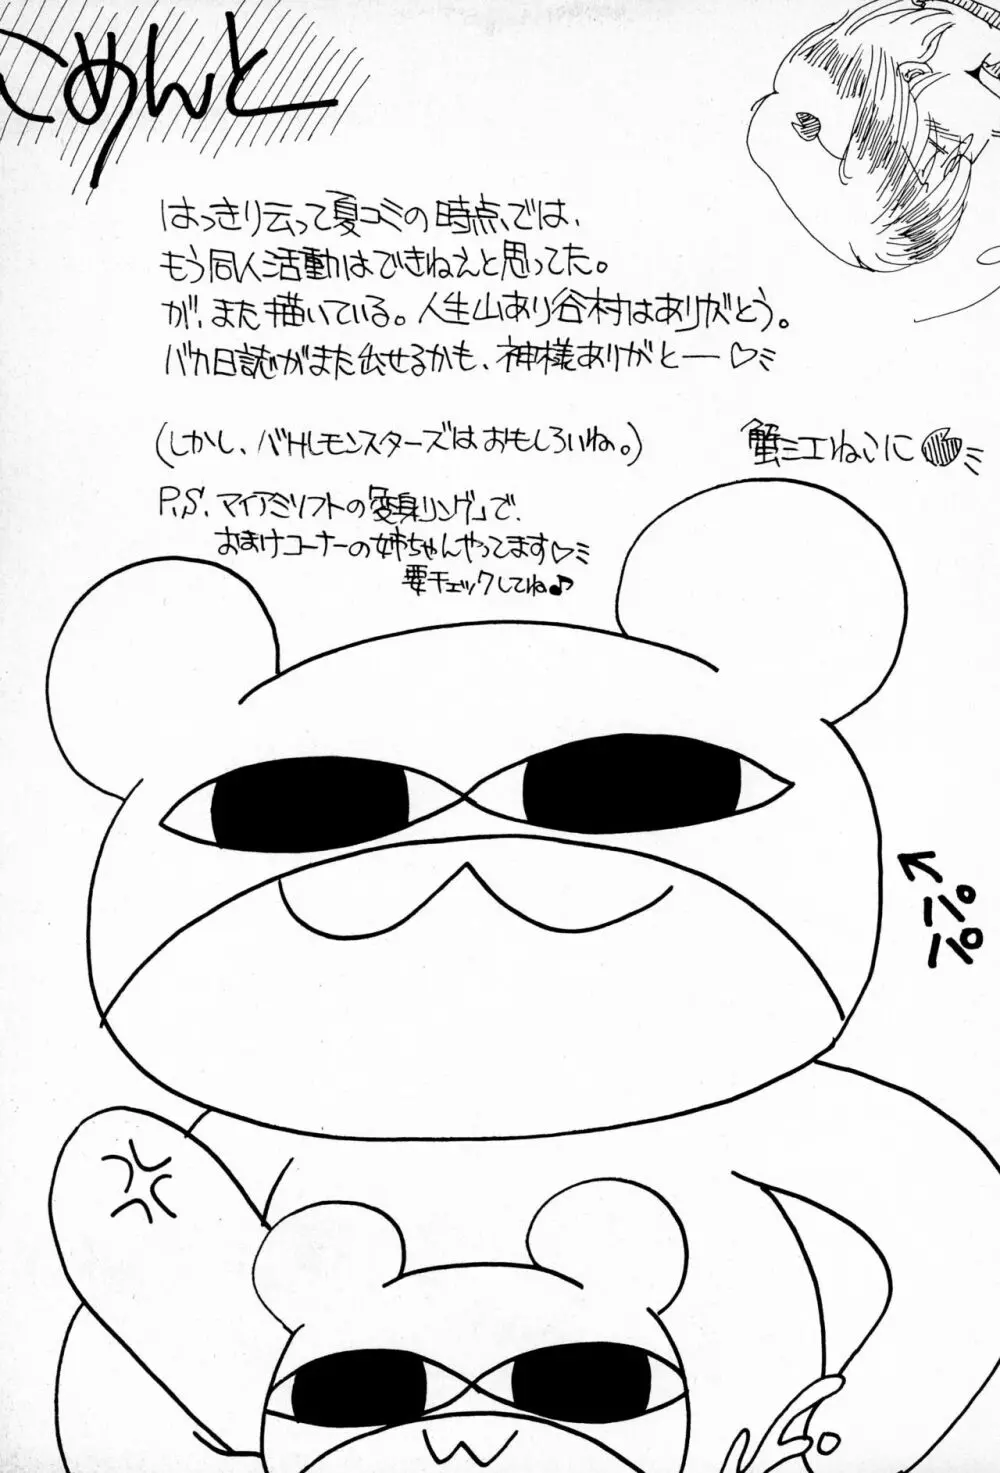 こめんと
はっきり云って夏コミの時点では、
もう同人活動はできねえと思ってた。
が、また描いている。人生山あり谷村はありがとう。
バカ日誌がまた出せるかも、神様ありがとー♡ミ
(しかし、バトルモンスターズはおもしろいね。)
蟹ミエねこに
P.S. マイアミソフトの「変身リング」で、
おまけコーナーの姉ちゃんやってます♡ミ
要チェックしてね♪